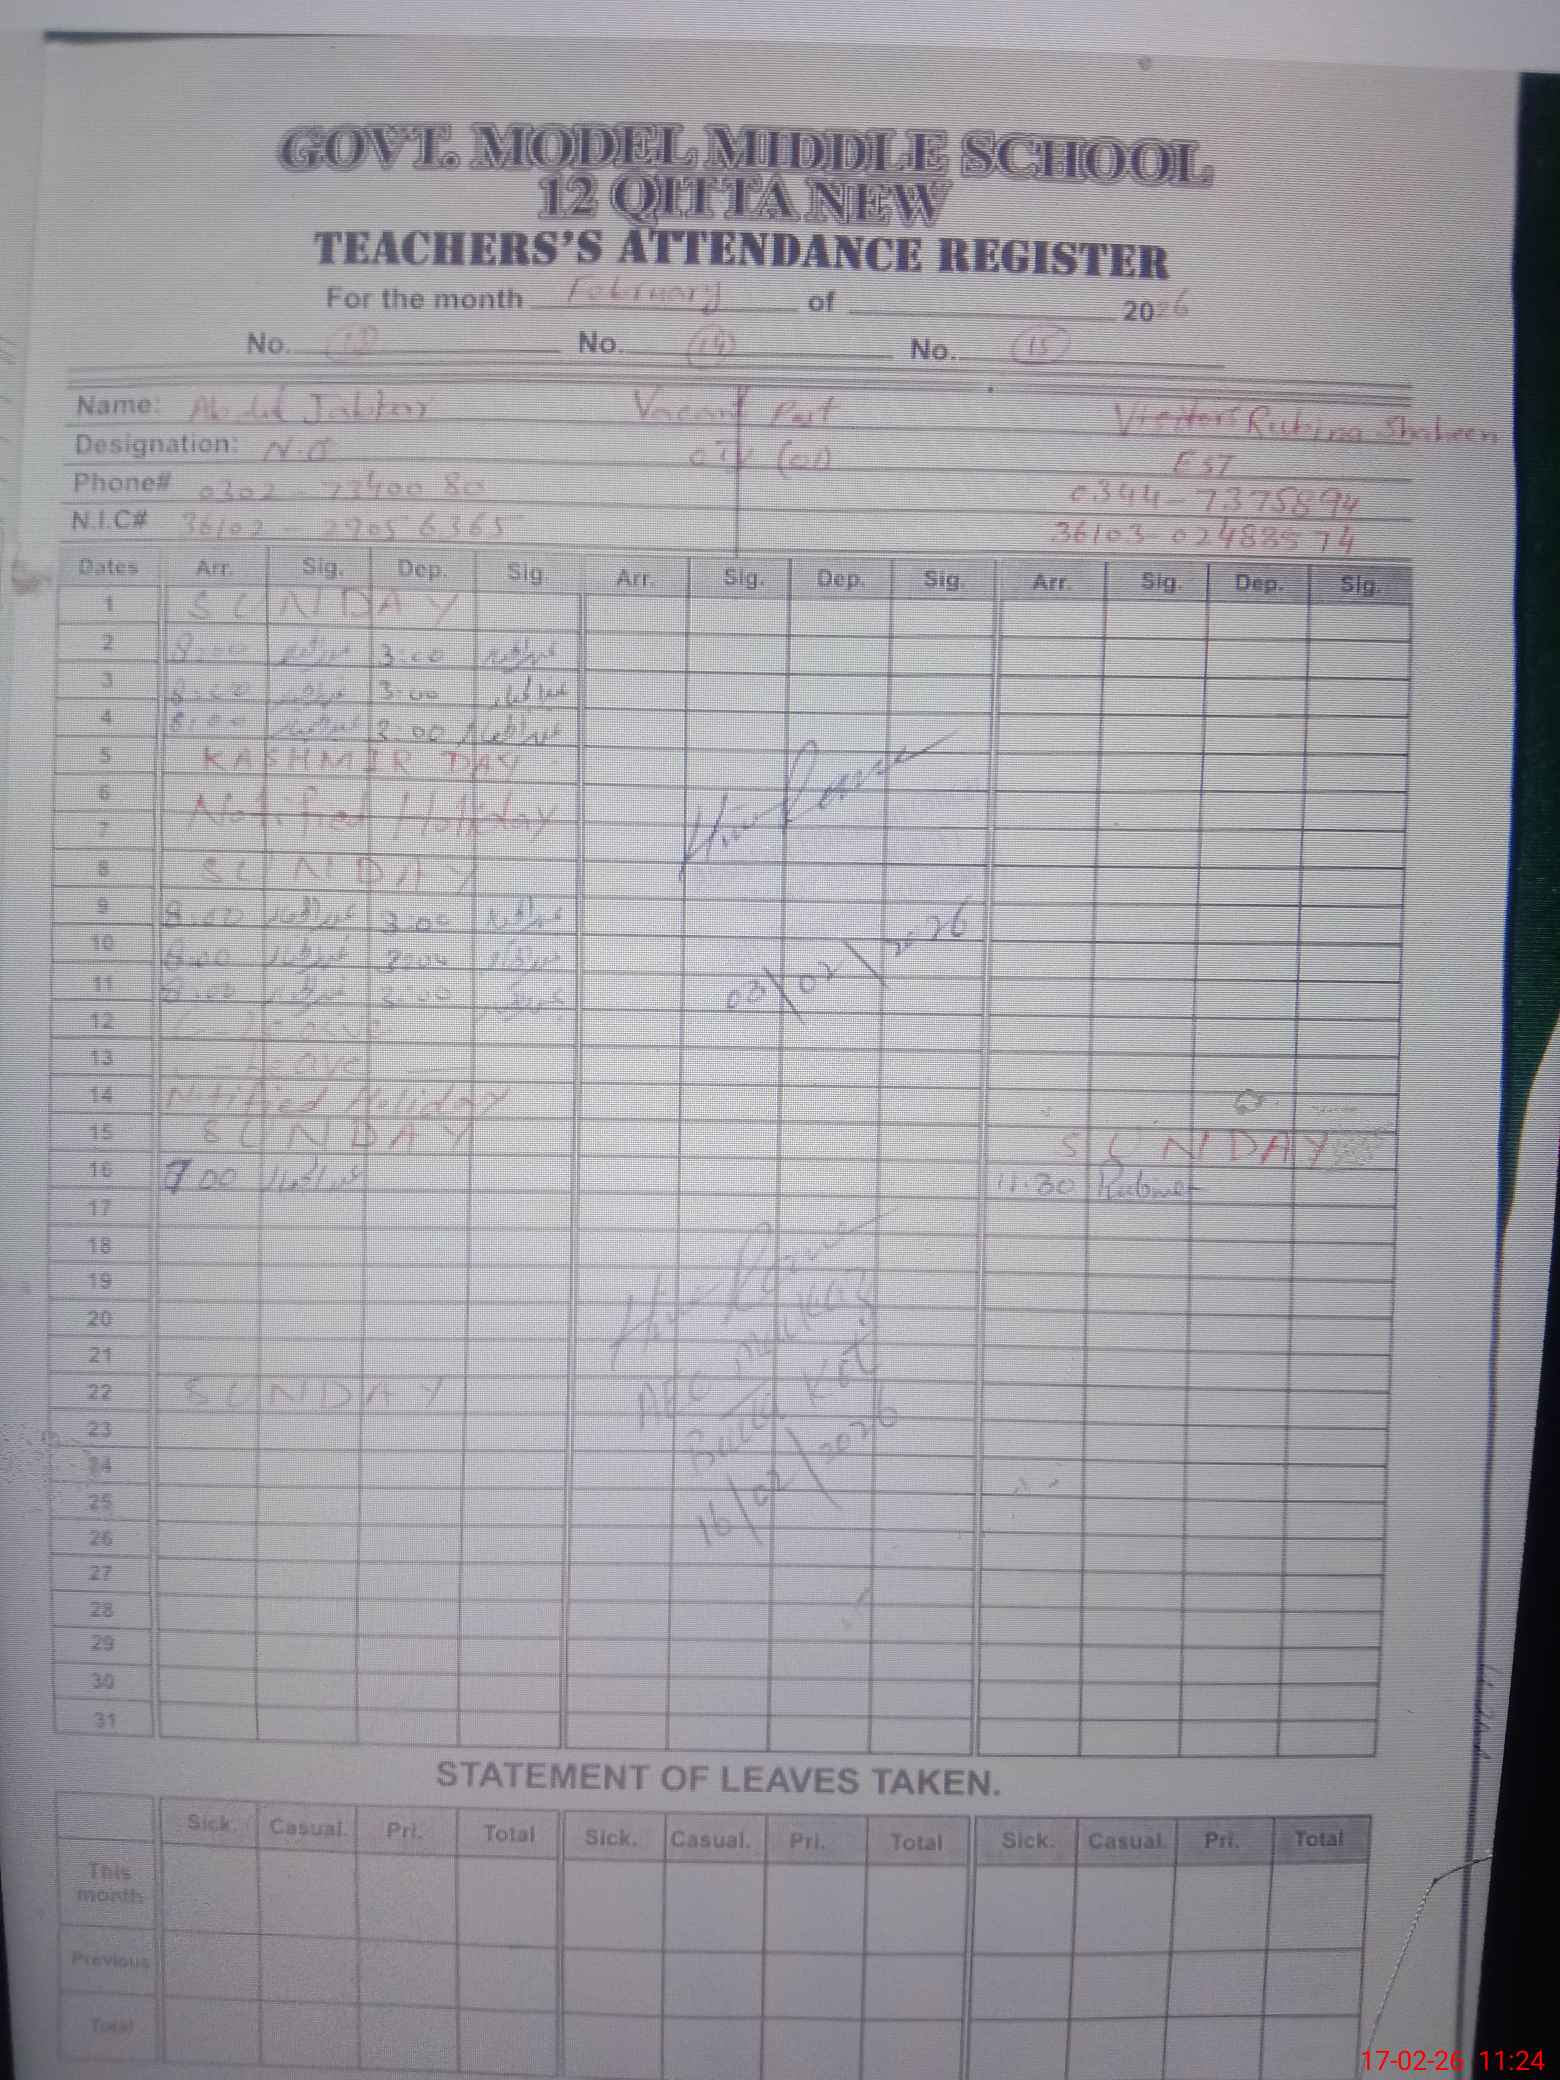 GOVT. MODEL MIDDLE SCHOOL
12 QITTA NEW
TEACHERS'S ATTENDANCE REGISTER
For the month February of 2026
No. 13 No. 14 No. 15
Name: Abdul Jabbar Vacant Post Visitors Rubina Shaheen
Designation: N.Q EST
Phone# 0302-7340080 0344-7375894
N.I.C# 36102-29056365 36103-02488574
Dates Arr. Sig. Dep. Sig. Arr. Sig. Dep. Sig. Arr. Sig. Dep. Sig.
1 SUNDAY
2 8:00 عبدالجبار 3:00 عبدالجبار
3 8:00 عبدالجبار 3:00 عبدالجبار
4 8:00 عبدالجبار 3:00 عبدالجبار
5 KASHMIR DAY
6 Notified Holiday
7
8 SUNDAY
9 8:00 عبدالجبار 3:00 عبدالجبار
10 8:00 عبدالجبار 3:00 عبدالجبار
03/02/2026
11 8:00 عبدالجبار 3:00 عبدالجبار
12 Leave
13 Leave
14 Notified Holiday
15 SUNDAY SUNDAY
16 9:00 عبدالجبار 11:30 Rubina
17
18
19
20
21
22 SUNDAY
AEO
23
24
25
16/02/2026
26
27
28
29
30
31
STATEMENT OF LEAVES TAKEN.
Sick. Casual. Pri. Total Sick. Casual. Pri. Total Sick. Casual. Pri. Total
This month
Previous
Total
17-02-26 11:24